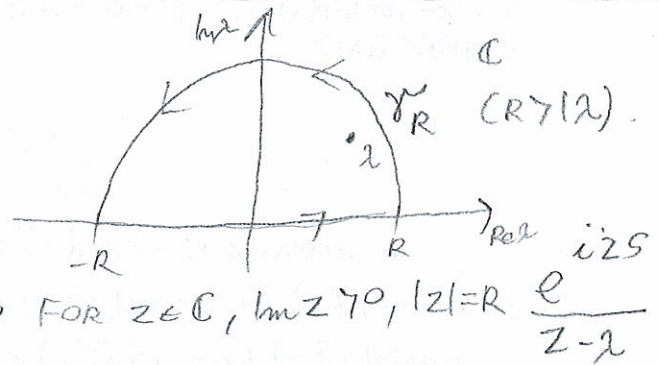 Imλ
ℂ
γ_R (R>|λ|).
λ
-R R Reλ
FOR z∈ℂ, Im z>0, |z|=R e^{izs}/(z-λ)